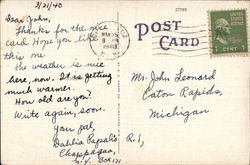 3/21/40
Dear John,
Thanks for the nice
card. Hope you like
this one.
The weather is nice
here, now. It is getting
much warmer.
How old are you?
Write again, soon.
Your pal,
Dahlia
R.1,
Chappaqua,
N.Y. Box 121
27789
POST
CARD
1 CENT 1
Mr. John Leonard
Eaton Rapids,
Michigan